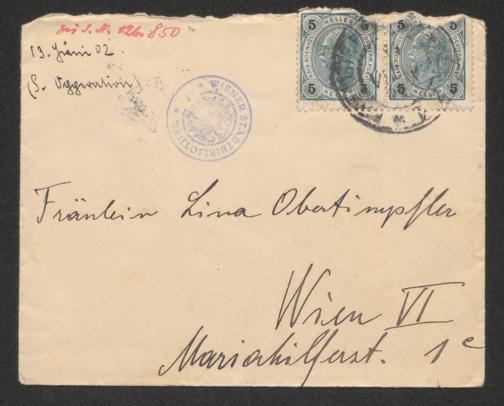 zu I. N. 126.850
13. Juni 02.
(S. Aggeration)
WIENER STADTBIBLIOTHEK
5 HELLER 5
5 5
5 HELLER 5
5 5
Fräulein Lina Obertimpfler
Wien VI
Mariahilferst. 1c